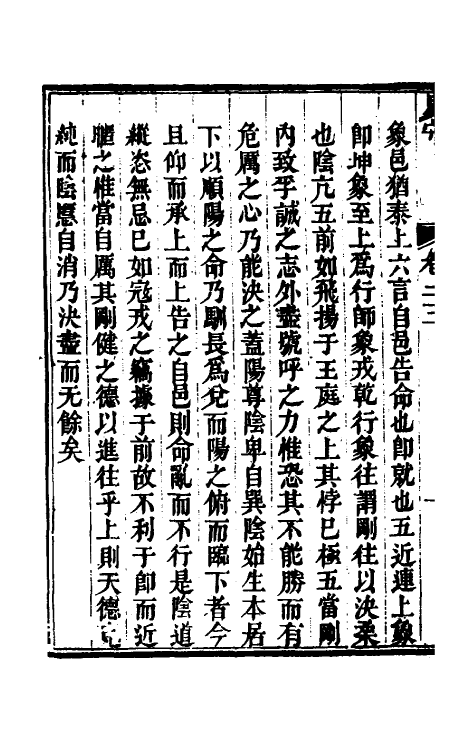 象邑猶泰上六言自邑告命也卽就也五近連上象
卽坤象至上爲行師象戎乾行象往謂剛往以決柔
也陰亢五前如飛揚于王庭之上其悖已極五當剛
內致孚誠之志外盡號呼之力惟恐其不能勝而有
危厲之心乃能決之蓋陽尊陰卑自巽陰始生本居
下以順陽之命乃馴長爲兌而陽之俯而臨下者今
且仰而承上而上告之自邑則命亂而不行是陰道
縱恣無忌已如寇戎之竊據于前故不利于卽而近
之惟當自厲其剛健之德以進往乎上則天德
純而陰慝自消乃決盡而无餘矣
卷二三